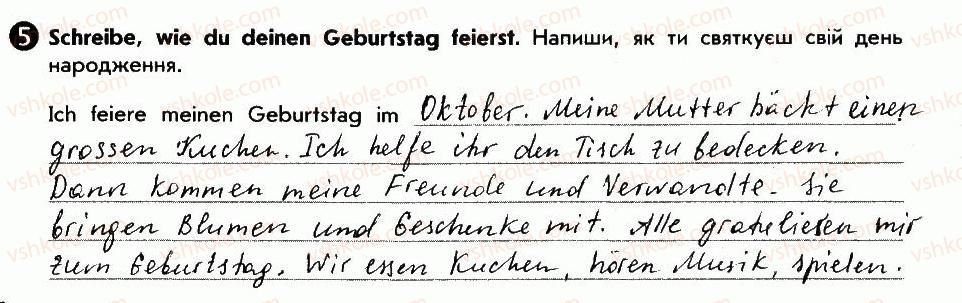 5 Schreibe, wie du deinen Geburtstag feierst. Напиши, як ти святкуєш свій день
народження.
Ich feiere meinen Geburtstag im Oktober. Meine Mutter bäckt einen
grossen Kuchen. Ich helfe ihr den Tisch zu bedecken.
Dann kommen meine Freunde und Verwandte. Sie
bringen Blumen und Geschenke mit. Alle gratulieren mir
zum Geburtstag. Wir essen Kuchen, hören Musik, spielen.